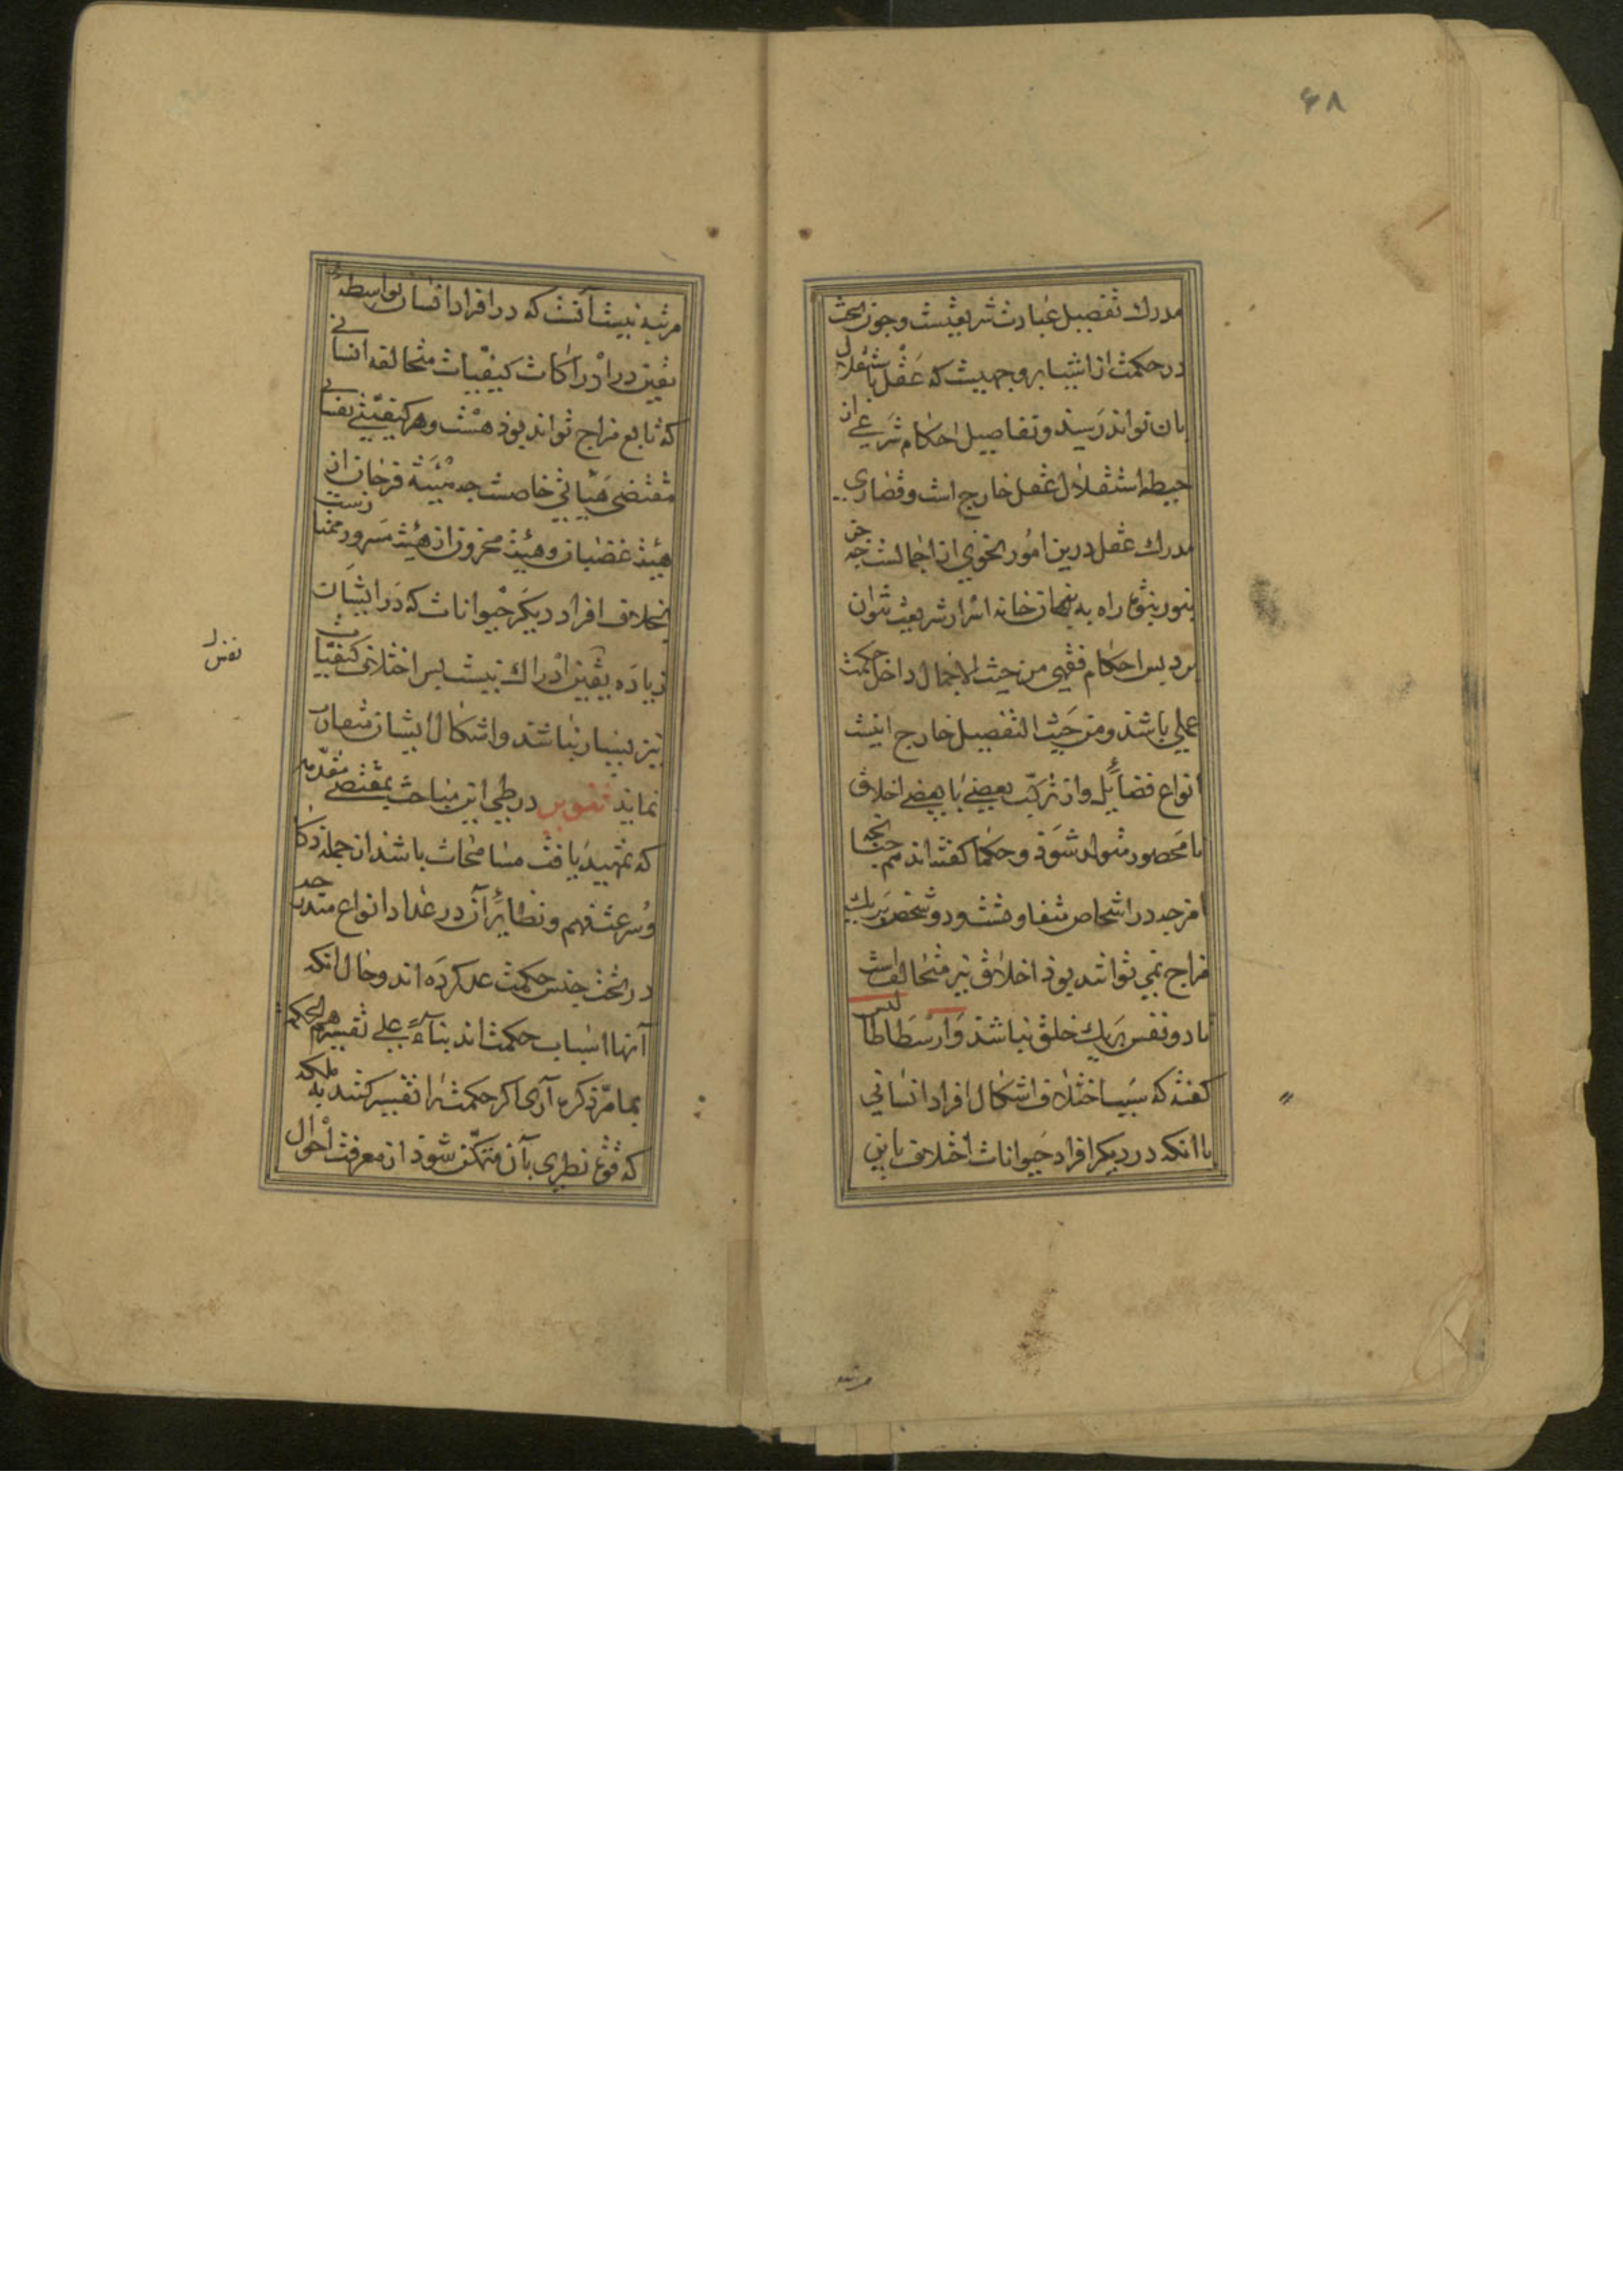 ۶۸
مدرك تفصیل عبادت شریعتست و چون بحث
در حکمت از اشیا بر وجهیست که عقل باستقلال
بان تواند رسید و تفاصیل احکام شرعی از
حیطه استقلال عقل خارج است و قصاری
مدرك عقل درین امور بنحوی از اجمالست چه جز
بنور نبوة راه به نهان خانه اسرار شریعت نتوان
برد پس احکام فقهی من حیث الاجمال داخل حکمت
عملی باشد و من حیث التفصیل خارج اینست
انواع فضایل و از ترکب بعضی با بعضی اخلاق
نا محصور متولد شود و حکما گفته‌اند همچنانچه
امزجه در اشخاص متفاوتست و دو شخص بر یك
مزاج نمی توانند بود اخلاق نیز متخالف است
تا دو نفس بر یك خلق نباشد و ارسطاطالیس
گفته که سبب اختلاف اشکال افراد انسانی
با انکه در دیگر افراد حیوانات اختلاف باین
مرتبه
مرتبه نیست آنست که در افراد انسان بواسطه
تفنن در ادراکات کیفیات متخالفه انسانی
که تابع مزاج تواند بود هست و هر کیفیتی نفسانی
مقتضی هیأتی خاصست چه هیئة فرحان از
هیئة غضبان و هیئة محزون از هیئة مسرور ممتازست
بخلاف افراد دیگر حیوانات که در ایشان
زیاده تفنن ادراك نیست پس اختلاف کیفیات
نیز بسیار نباشد و اشکال ایشان متقارب
نماید تنویر در طی این مباحث بمقتضی مقدمه
که تمهید یافت مسامحات باشد از جمله ذکا
و سرعت فهم و نظایر آن در عداد انواع مندرجه
در تحت جنس حکمت عد کرده اند و حال انکه
آنها اسباب حکمت اند بناء علی تفسیرهم الحکمة
بما مرّ ذکره آری اگر حکمت را تفسیر کنند به ملکه
که قوة نظری بآن متمکن شود از معرفت احوال
نفس